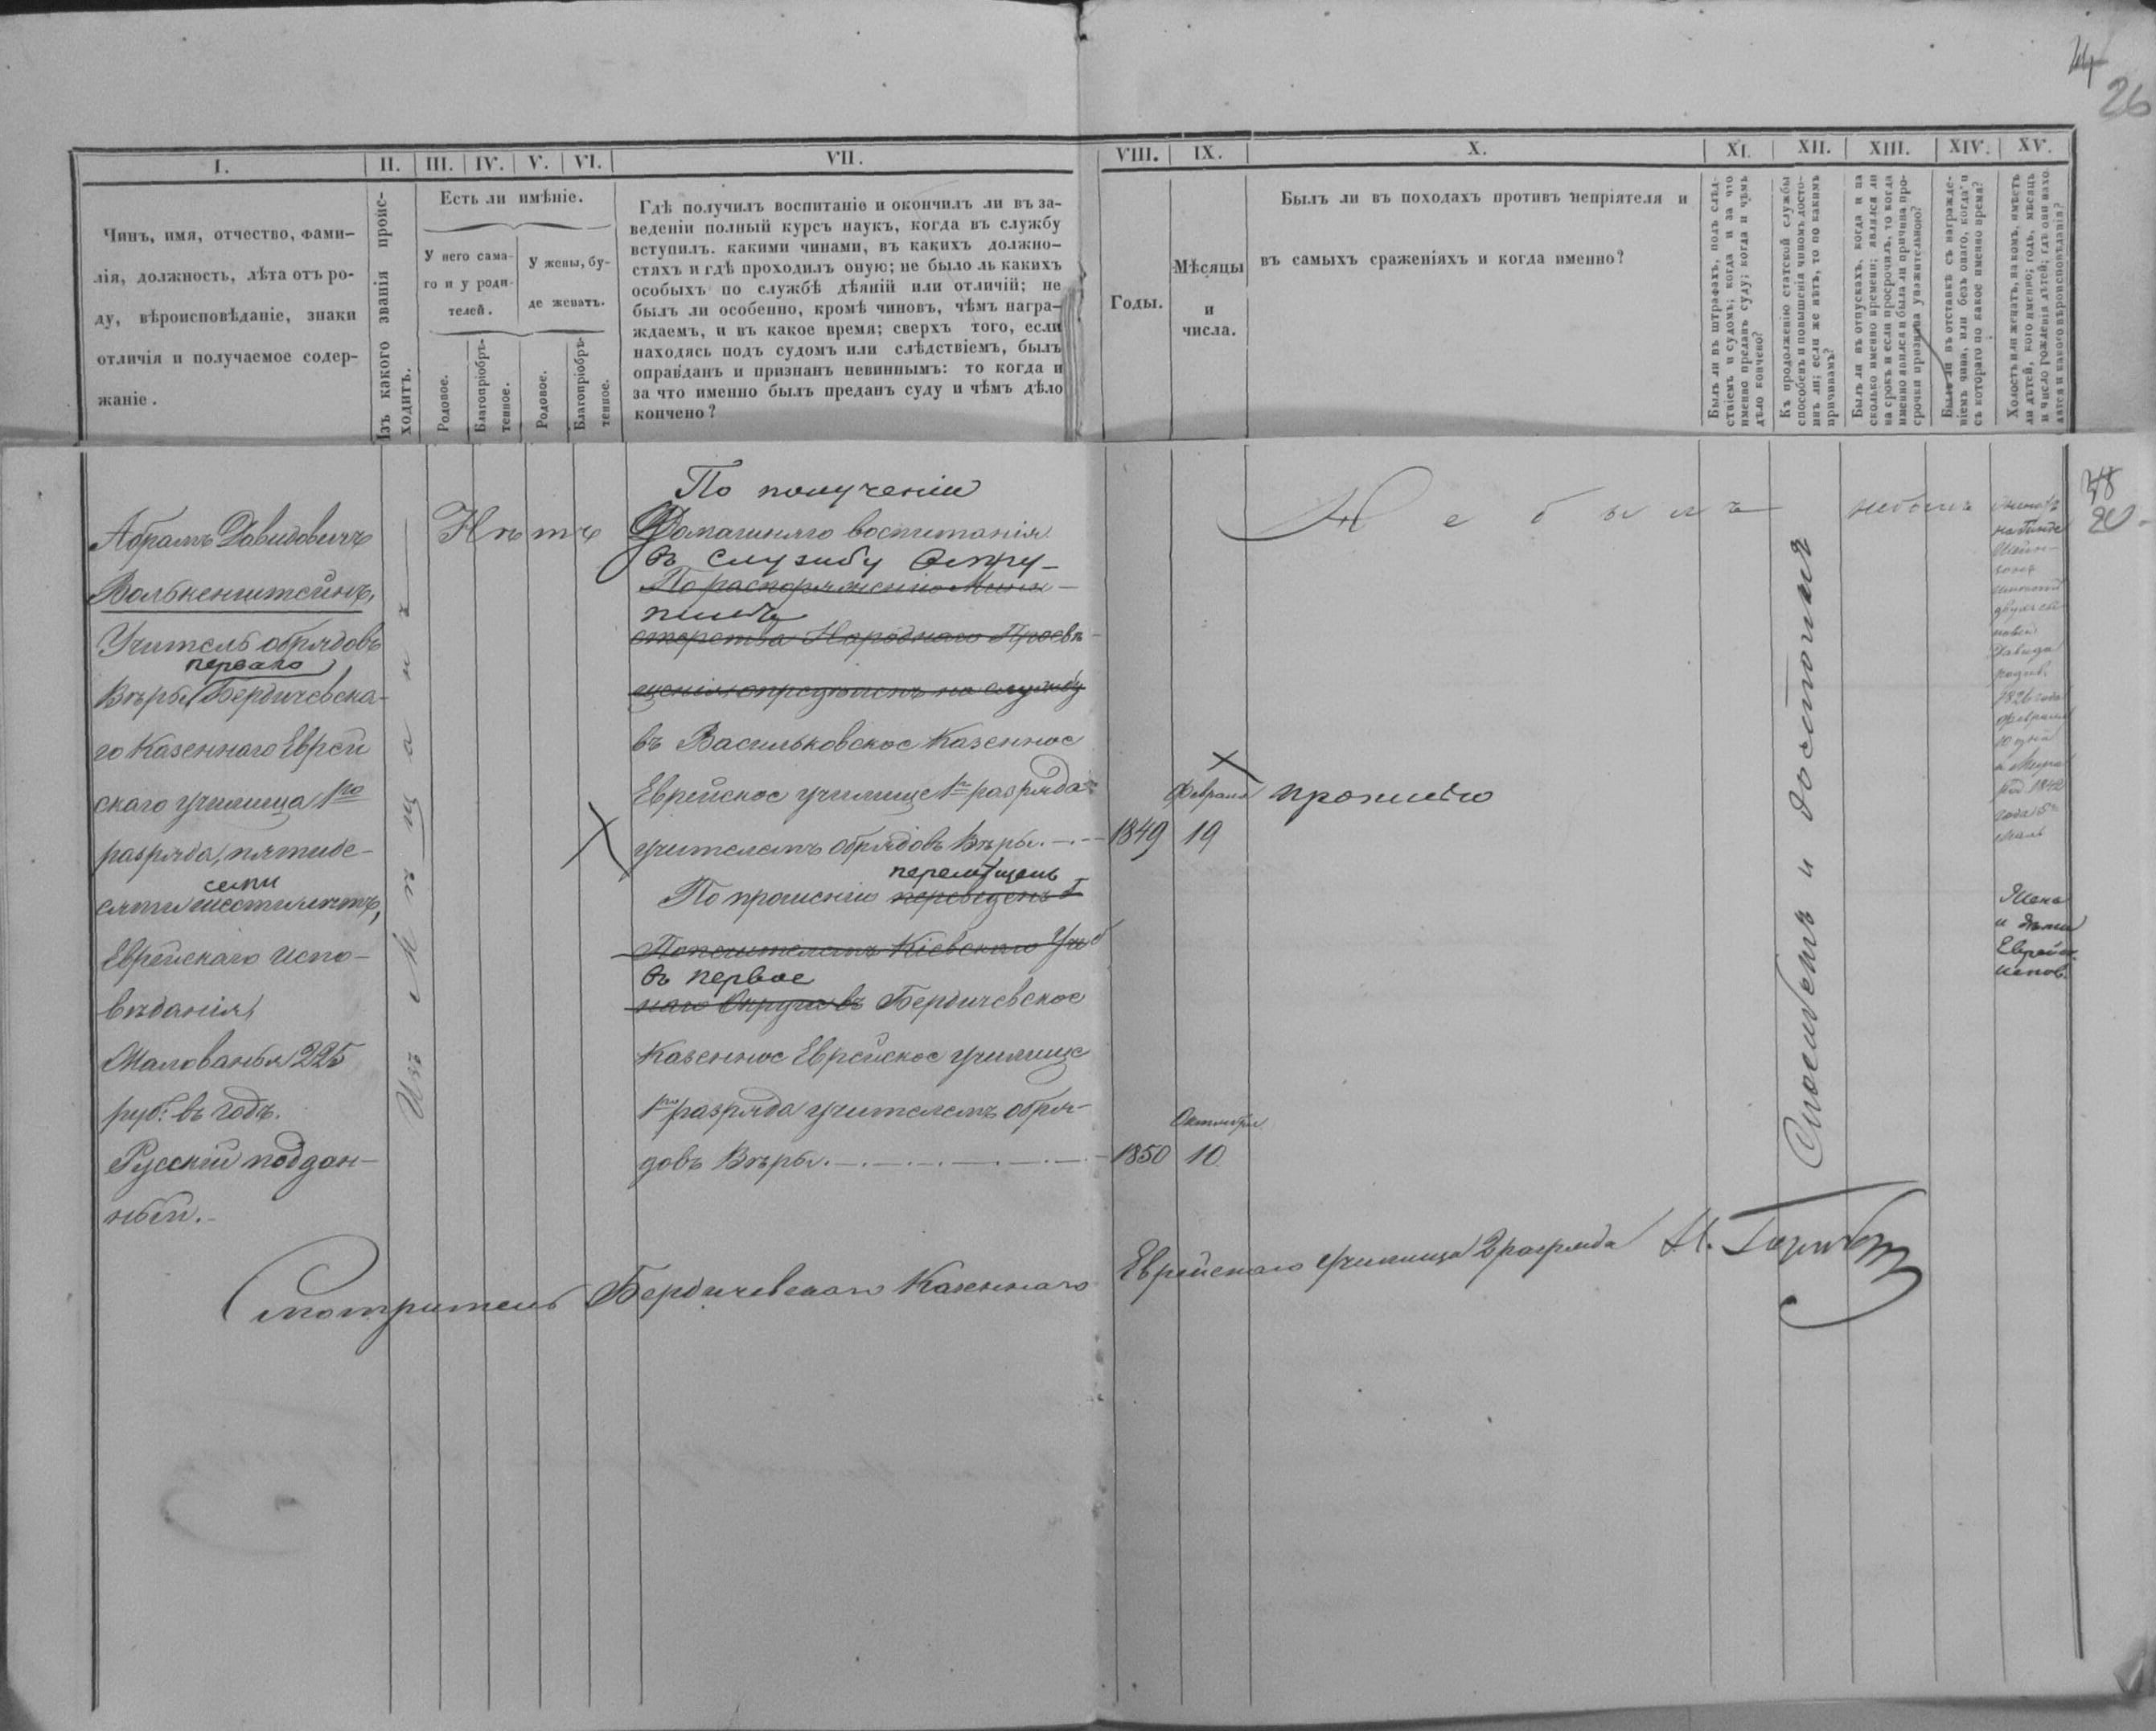 44
26
I.
II.
III.
IV.
V.
VI.
VII.
VIII.
IX.
X.
XI.
XII.
XIII.
XIV.
XV.
Чинъ, имя, отчество, фами-
лія, должность, лѣта отъ ро-
ду, вѣроисповѣданіе, знаки
отличія и получаемое содер-
жаніе.
Изъ какого званія проис-
ходитъ.
Есть ли имѣніе.
У него сама-
го и у роди-
телей.
У жены, бу-
де женатъ.
Родовое.
Благопріобрѣ-
тенное.
Родовое.
Благопріобрѣ-
тенное.
Гдѣ получилъ воспитаніе и окончилъ ли въ за-
веденіи полный курсъ наукъ, когда въ службу
вступилъ. какими чинами, въ какихъ должно-
стяхъ и гдѣ проходилъ оную; не было ль какихъ
особыхъ по службѣ дѣяній или отличій; не
былъ ли особенно, кромѣ чиновъ, чѣмъ награ-
ждаемъ, и въ какое время; сверхъ того, если
находясь подъ судомъ или слѣдствіемъ, былъ
оправданъ и признанъ невиннымъ: то когда и
за что именно былъ преданъ суду и чѣмъ дѣло
кончено?
Годы.
Мѣсяцы
и
числа.
Былъ ли въ походахъ противъ непріятеля и
въ самыхъ сраженіяхъ и когда именно?
Былъ ли въ штрафахъ, подъ слѣд-
ствіемъ и судомъ; когда и за что
именно преданъ суду; когда и чѣмъ
дѣло кончено?
Къ продолженію статской службы
способенъ и повышенія чиномъ досто-
инъ ли; если же нѣтъ, то по какимъ
причинамъ?
Былъ ли въ отпускахъ, когда и на
сколько именно времени; являлся ли
на срокъ и если просрочилъ, то когда
именно явился и была ли причина про-
срочки признана уважительною?
Былъ ли въ отставкѣ съ награжде-
ніемъ чина, или безъ онаго, когда и
съ котораго по какое именно время?
Холостъ или женатъ, на комъ, имѣетъ
ли дѣтей, кого именно; годъ, мѣсяцъ
и число рожденія дѣтей; гдѣ они нахо-
дятся и какого вѣроисповѣданія?
Абрамъ Давидовичъ
Волькенштейнъ,
Учитель обрядовъ
перваго
Вѣры Бердичевска-
го Казеннаго Еврей
скаго училища 1го
разряда, пятиде-
семи
сяти шести лѣтъ,
Еврейскаго испо-
вѣданія,
Жалованья 225
руб: въ годъ.
Русскій поддан-
ный.
Изъ Мѣщанъ
Нѣтъ
По полученіи
Домашняго воспитанія
въ службу всту-
По распоряженію Мини-
пилъ
стерства Народнаго Просвѣ-
щенія опредѣленъ на службу
въ Васильковское Казенное
Еврейское училище 1го разряда
учителемъ обрядовъ Вѣры.
По прошенію
перемѣщенъ
переведенъ
Попечителемъ Кіевскаго Учеб
въ первое
наго Округа въ Бердичевское
Казенное Еврейское училище
1го разряда учителемъ обря-
довъ Вѣры.
1849
Февраля
19
1850
Октября
10
Не былъ
Способенъ и достоинъ
не былъ
Женатъ
двухъ сы
новей
Давида
1826 года
1842
года
Жена
и дѣти
Еврейск.
испов.
Смотритель Бердичевскаго Казеннаго Еврейскаго училища 2 разряда